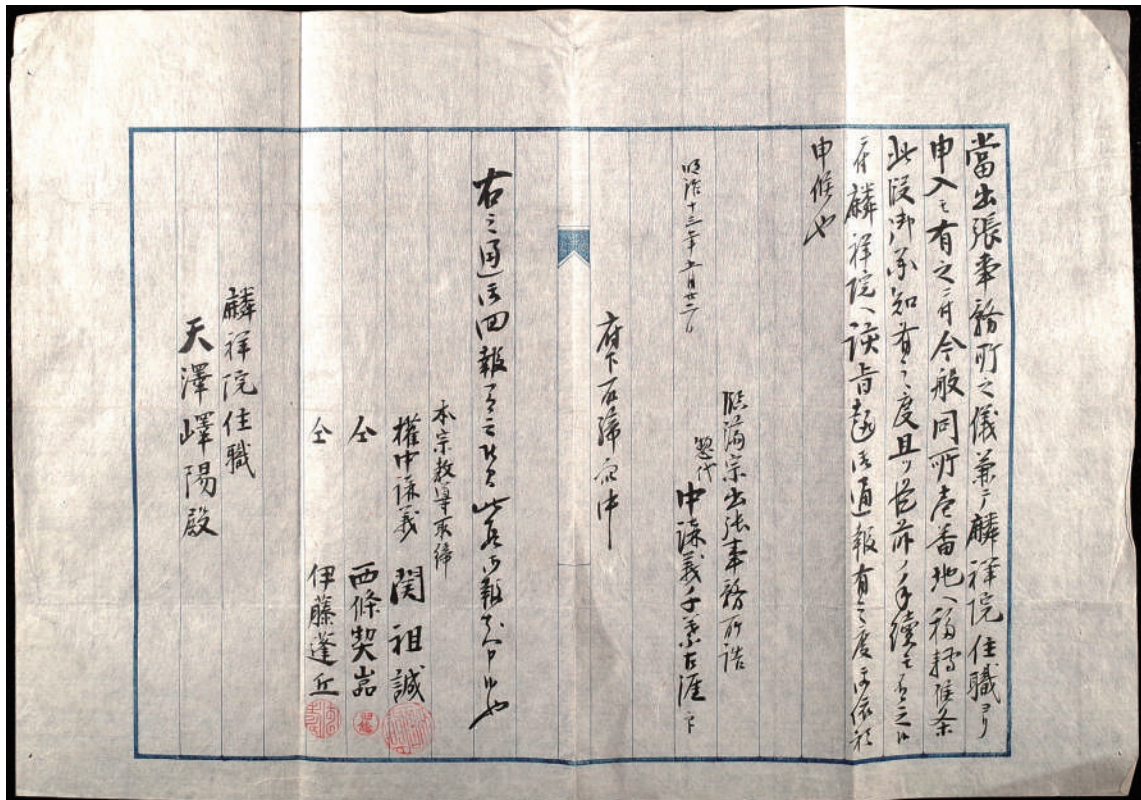 當出張事務所之儀兼テ麟祥院住職ヨリ
申入モ有之ニ付今般同所壱番地ヘ移轉候条
此段御承知有之度且ツ是前ノ手續モ有之候
ニ付麟祥院ヘ該旨趣御通報有之度此依頼
申候也
明治十三年五月廿二日
臨済宗出張事務所詰
惣代
中講義千葉古涯 印
府下取締衆中
右之通御回報有之候間此段御報知申候也
本宗教導取締
權中講義 関祖誠
仝 西條契嵓
仝 伊藤蓬丘
麟祥院住職
天澤嶧陽殿